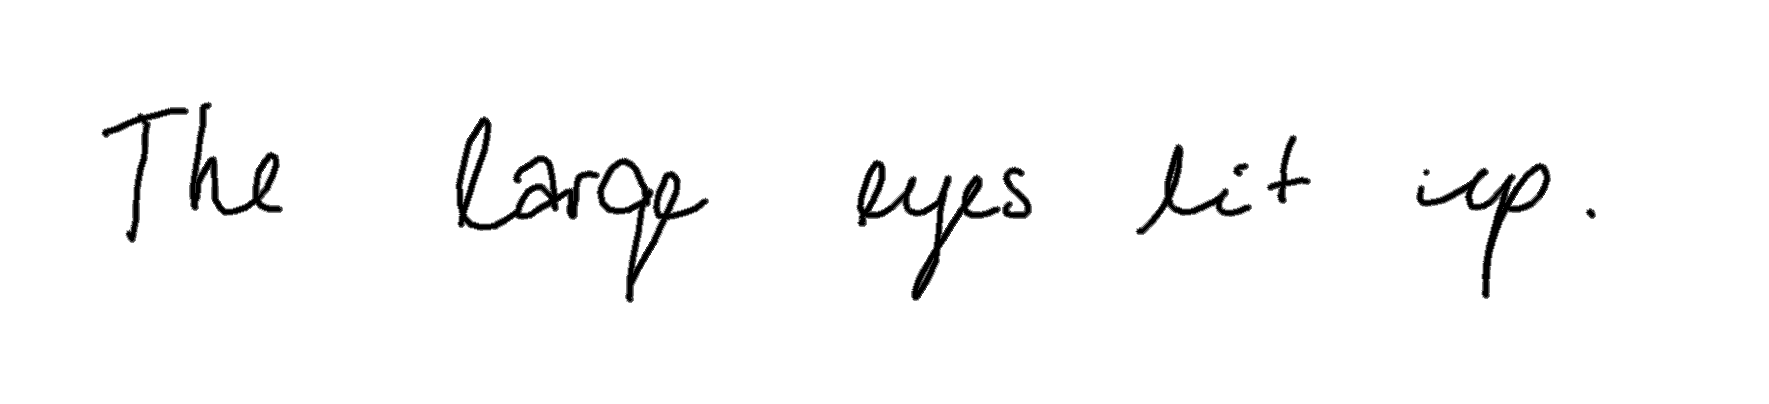 The large eyes lit up.